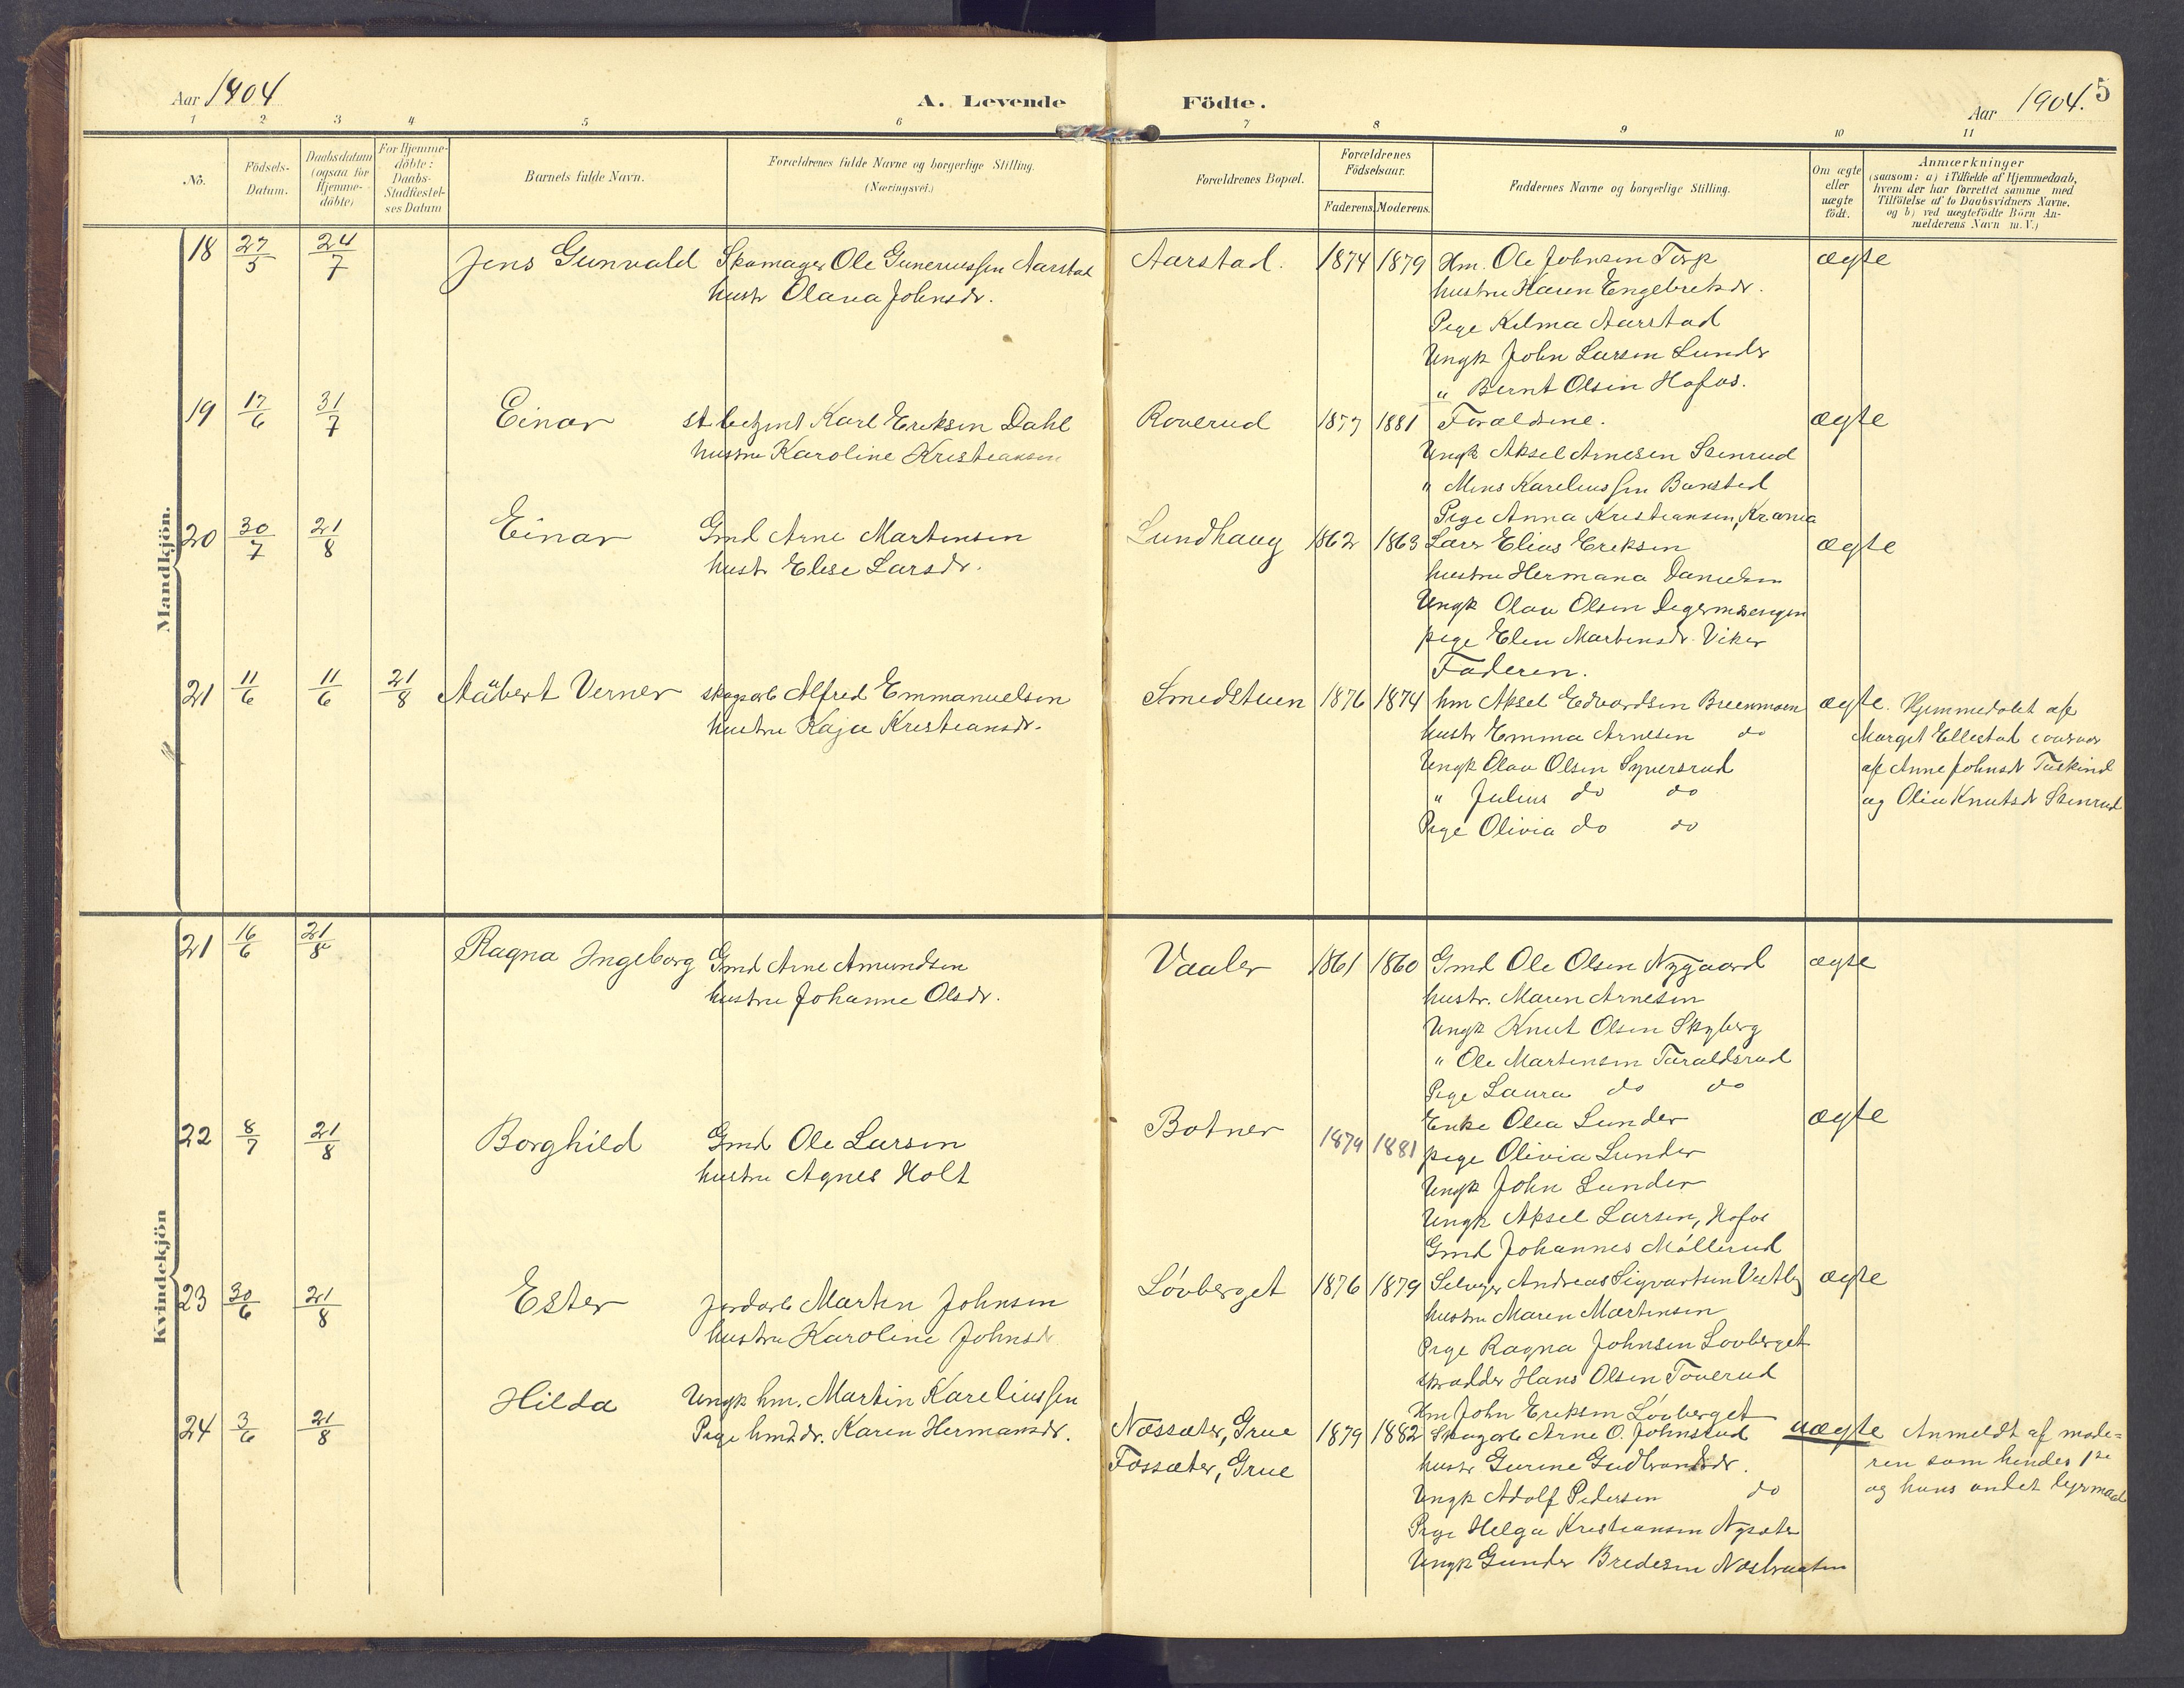 Aar 1904 A. Levende Födte. Aar 1904. 5
1 2 3 4 5 6 7 8 9 10 11
No.
Födsels-
Datum.
Daabsdatum
(ogsaa for
Hjemme-
döbte)
For Hjemme-
döbte:
Daabs-
Stadfæstel-
ses Datum
Barnets fulde Navn.
Forældrenes fulde Navne og borgerlige Stilling.
(Næringsvei.)
Forældrenes Bopæl.
Forældrenes
Födselsaar.
Faderens. Moderens.
Faddernes Navne og borgerlige Stilling.
Om ægte
eller
uægte
födt.
Anmærkninger
(saasom: a) i Tilfælde af Hjemmedaab,
hvem der har forrettet samme med
Tilföielse af to Daabsvidners Navne.
og b) ved uægtefödte Börn An-
melderens Navn m. V.)
Mandkjön.
18 27/5 24/7 Jens Gunvald Skomager Ole Gunerius sen Aarstad Aarstad. 1874 1879 Hm. Ole Johnsen Torp ægte
hustr Olava Johnsdr. hustru Karen Engebretsdr.
Pige Kilma Aarstad
Ungk John Larsen Lunder
" Bernt Olsen Hofos.
19 17/6 31/7 Einar Karl Eriksen Dahl Roverud 1877 1881 Forældrene. ægte
hustru Karoline Kristiansen Ungk Aksel Arnesen Stenrud
" Mens Karelius sen Banstad
Pige Anna Kristiansen, Krania
20 30/7 21/8 Einar Gmd Arne Martinsen Lundhaug 1862 1863 Lars Elias Eriksen ægte
hustr Elise Larsdr. hustru Hermana Danielsen
Ungk Olav Olsen Digermosengen
pige Elen Martinsdr. Viker
Faderen.
21 11/6 11/6 21/8 Aäbert Verner skogarb Alfred Emmanuelsen Smedstuen 1876 1874 hm Aksel Edvardsen Breenmoen ægte. Hjemmedøbt af
hustru Kaja Kristiansdr. hustr Emma Arnesen do Marget Ellestad
Ungk Olav Olsen Syversrud af Anne Johnsdr Tuskind
" Julius do do og Olia Knutsdr Stenrud
Pige Olivia do do
Kvindekjön
21 16/6 21/8 Ragna Ingeborg Gmd Arne Amundsen Vaaler 1861 1860 Gmd Ole Olsen Nygaard ægte
hustru Johanne Olsdr. hustr. Maren Arnesen
Ungk Knut Olsen Skyberg
" Ole Martinsen Taraldsrud
Pige Laura do do
22 8/7 21/8 Borghild Gmd Ole Larsen Botner 1879 1881 Enke Olea Lunder ægte
hustru Agnes Holt pige Olivia Lunder
Ungk John Lunder
Ungk Aksel Larsen, Hofos
Gmd Johannes Møllerud
23 30/6 21/8 Ester jordarb Martin Johnsen Løvberget 1876 1879 Selveier Andreas Sigvartsen Vestby ægte
hustru Karoline Johnsdr hustru Maren Martinsen
Pige Ragna Johnsen Lovberget
skrædder Hans Olsen Toverud
Hm John Eriksen Løvberget
24 3/6 21/8 Hilda Ungk hm. Martin Karelius sen Næssæter, Grue 1879 1882 Skogarb Arne O. Johnsrud uægte Anmeldt af mode=
Pige hmd dr. Karen Hermansdr. Fossæter, Grue hustr Gurine Gudbrandsdr. ren som hendes 1ste
Ungk Adolf Pedersen do og hans andet leiermaal
Pige Helga Kristiansen Nysæter
Ungk Gunder Bredesen Næsbraaten